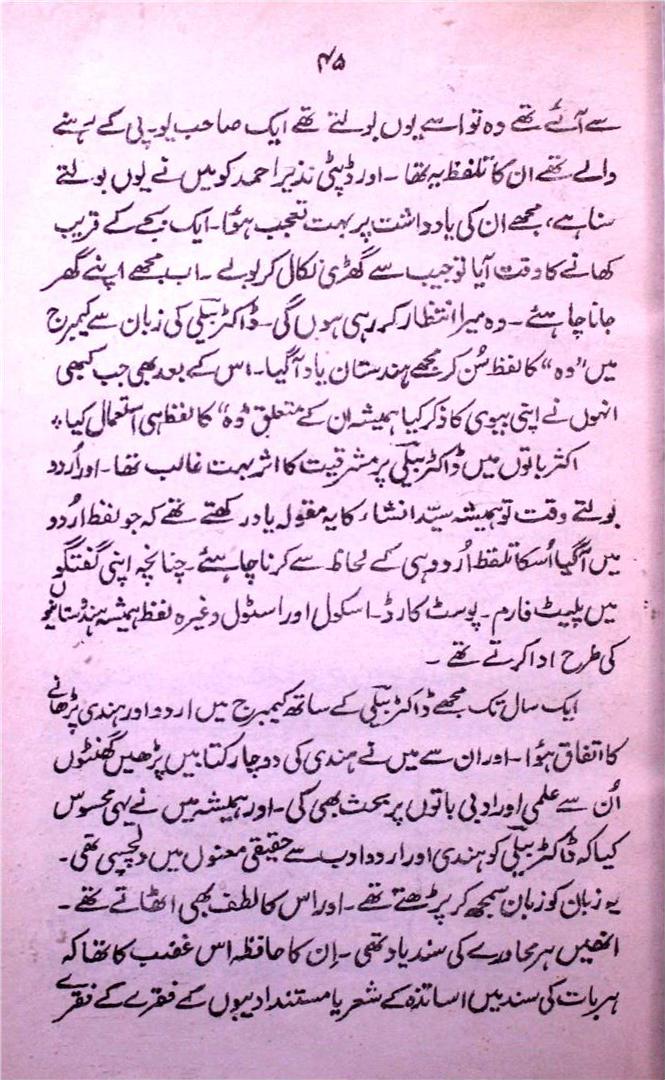 ۴۵
سے آئے تھے وہ تو اسے یوں بولتے تھے ایک صاحب یو۔پی کے رہنے
والے تھے ان کا تلفظ یہ تھا ۔ اور ڈپٹی نذیر احمد کو میں نے یوں بولتے
سنا ہے، مجھے ان کی یادداشت پر بہت تعجب ہؤا۔ ایک بجے کے قریب
کھانے کا وقت آیا تو جیب سے گھڑی نکال کر بولے ۔ اب مجھے اپنے گھر
جانا چاہئے ۔ وہ میرا انتظار کر رہی ہوں گی۔ ڈاکٹر بیلی کی زبان سے کیمبرج
میں "وہ" کا لفظ سُن کر مجھے ہندستان یاد آگیا۔ اس کے بعد بھی جب کبھی
انہوں نے اپنی بیوی کا ذکر کیا ہمیشہ ان کے متعلق "وہ" کا لفظ ہی استعمال کیا ؞
اکثر باتوں میں ڈاکٹر بیلی پر مشرقیت کا اثر بہت غالب تھا۔ اور اُردو
بولتے وقت تو ہمیشہ سیّد انشاء کا یہ مقولہ یاد رکھتے تھے کہ جو لفظ اُردو
میں آگیا اُسکا تلفظ اُردو ہی کے لحاظ سے کرنا چاہئے ۔ چنانچہ اپنی گفتگو
میں پلیٹ فارم ۔ پوسٹ کارڈ ۔ اسکول اور اسٹول وغیرہ لفظ ہمیشہ ہندوستانیوں
کی طرح ادا کرتے تھے ۔
ایک سال تک مجھے ڈاکٹر بیلی کے ساتھ کیمبرج میں اردو اور ہندی پڑھانے
کا اتفاق ہؤا ۔ اور ان سے میں نے ہندی کی دو چار کتابیں پڑھیں گھنٹوں
اُن سے علمی اور ادبی باتوں پر بحث بھی کی۔ اور ہمیشہ میں نے یہی محسوس
کیا کہ ڈاکٹر بیلی کو ہندی اور اردو ادب سے حقیقی معنوں میں دلچسپی تھی ۔
یہ زبان کو زبان سمجھ کر پڑھتے تھے ۔ اور اس کا لطف بھی اٹھاتے تھے ۔
انھیں ہر محاورے کی سند یاد تھی ۔ اِن کا حافظہ اس غضب کا تھا کہ
ہر بات کی سند میں اساتذہ کے شعر یا مستند ادیبوں کے فقرے کے فقرے